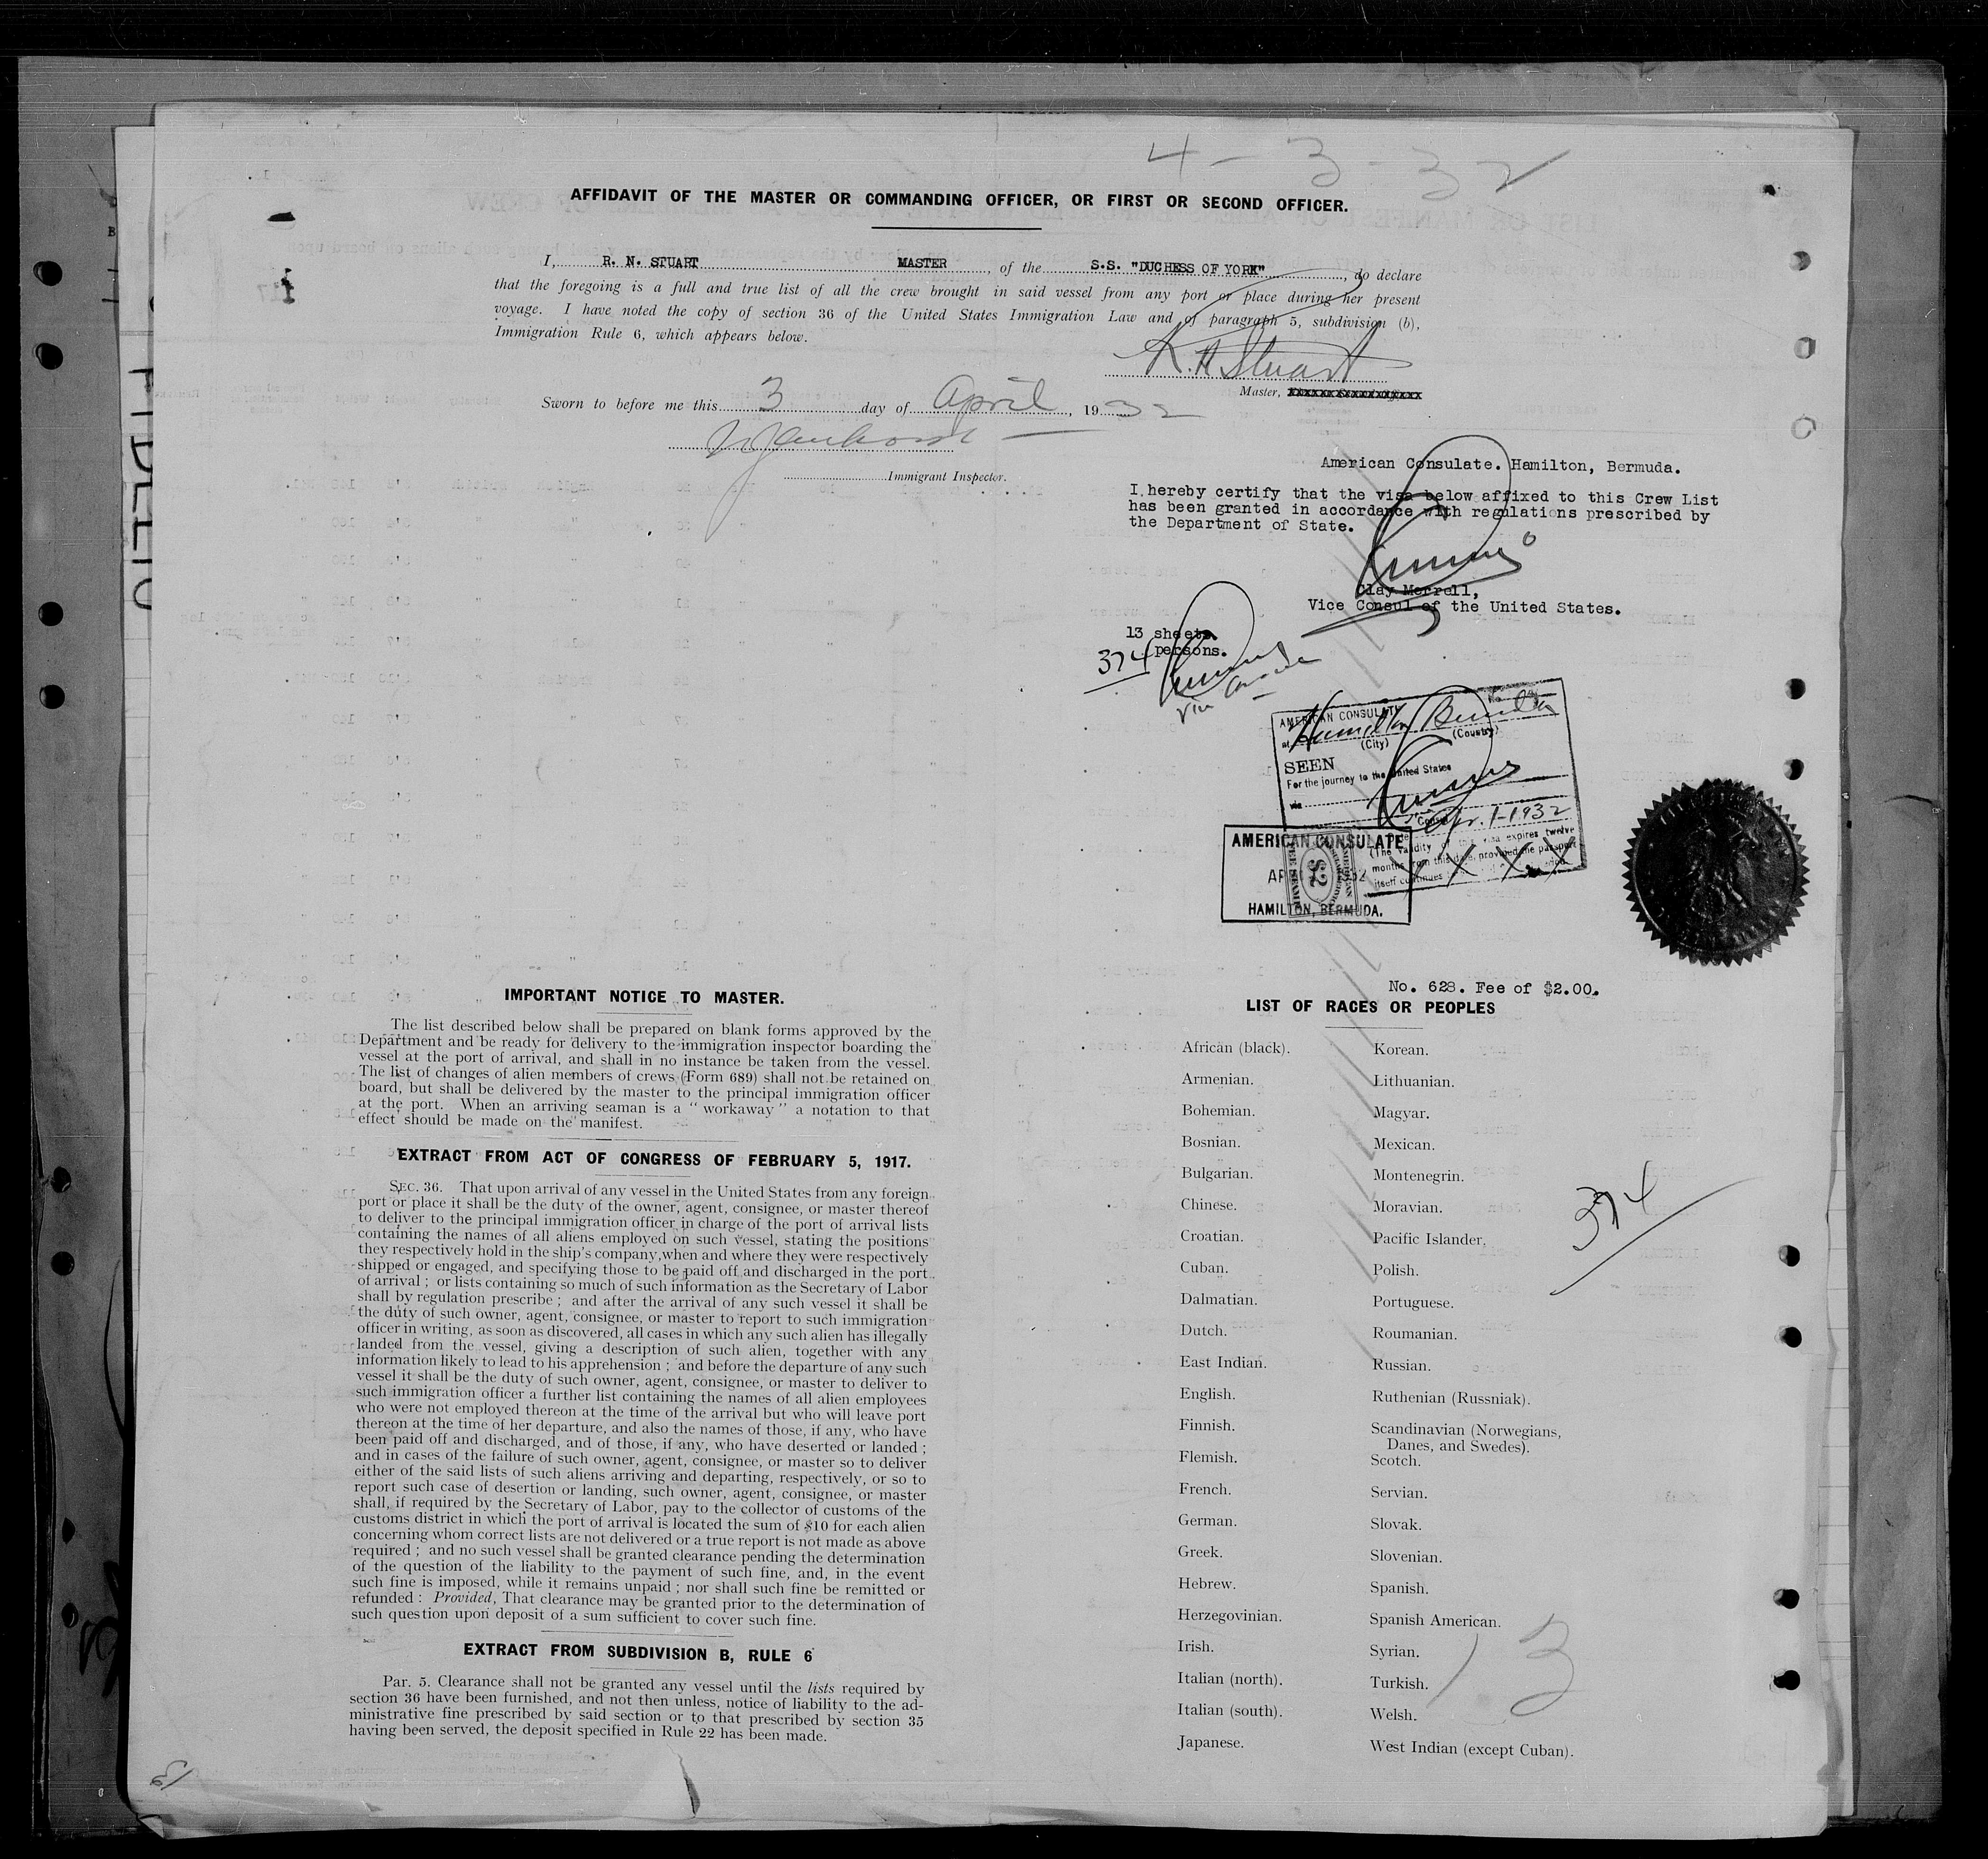 4-3-32
AFFIDAVIT OF THE MASTER OR COMMANDING OFFICER, OR FIRST OR SECOND OFFICER.
I, R. N. STUART MASTER, of the S.S. "DUCHESS OF YORK", do declare
that the foregoing is a full and true list of all the crew brought in said vessel from any port or place during her present
voyage. I have noted the copy of section 36 of the United States Immigration Law and of paragraph 5, subdivision (b),
Immigration Rule 6, which appears below.
R. N. Stuart
Master,
Sworn to before me this 3 day of April, 1932
Immigrant Inspector.
American Consulate. Hamilton, Bermuda.
I hereby certify that the visa below affixed to this Crew List
has been granted in accordance with regulations prescribed by
the Department of State.
Clay Merrell,
Vice Consul of the United States.
13 sheets.
374 persons.
AMERICAN CONSULATE
at Hamilton Bermuda
(City) (Country)
SEEN
For the journey to the United States
via
Consul
Apr. 1-1932
(The validity of this visa expires twelve
months from this date, provided the passport
itself continues
AMERICAN CONSULATE
HAMILTON, BERMUDA.
No. 628. Fee of $2.00.
IMPORTANT NOTICE TO MASTER.
The list described below shall be prepared on blank forms approved by the
Department and be ready for delivery to the immigration inspector boarding the
vessel at the port of arrival, and shall in no instance be taken from the vessel.
The list of changes of alien members of crews (Form 689) shall not be retained on
board, but shall be delivered by the master to the principal immigration officer
at the port. When an arriving seaman is a "workaway" a notation to that
effect should be made on the manifest.
EXTRACT FROM ACT OF CONGRESS OF FEBRUARY 5, 1917.
SEC. 36. That upon arrival of any vessel in the United States from any foreign
port or place it shall be the duty of the owner, agent, consignee, or master thereof
to deliver to the principal immigration officer in charge of the port of arrival lists
containing the names of all aliens employed on such vessel, stating the positions
they respectively hold in the ship's company, when and where they were respectively
shipped or engaged, and specifying those to be paid off and discharged in the port
of arrival; or lists containing so much of such information as the Secretary of Labor
shall by regulation prescribe; and after the arrival of any such vessel it shall be
the duty of such owner, agent, consignee, or master to report to such immigration
officer in writing, as soon as discovered, all cases in which any such alien has illegally
landed from the vessel, giving a description of such alien, together with any
information likely to lead to his apprehension; and before the departure of any such
vessel it shall be the duty of such owner, agent, consignee, or master to deliver to
such immigration officer a further list containing the names of all alien employees
who were not employed thereon at the time of the arrival but who will leave port
thereon at the time of her departure, and also the names of those, if any, who have
been paid off and discharged, and of those, if any, who have deserted or landed;
and in cases of the failure of such owner, agent, consignee, or master so to deliver
either of the said lists of such aliens arriving and departing, respectively, or so to
report such case of desertion or landing, such owner, agent, consignee, or master
shall, if required by the Secretary of Labor, pay to the collector of customs of the
customs district in which the port of arrival is located the sum of $10 for each alien
concerning whom correct lists are not delivered or a true report is not made as above
required; and no such vessel shall be granted clearance pending the determination
of the question of the liability to the payment of such fine, and, in the event
such fine is imposed, while it remains unpaid; nor shall such fine be remitted or
refunded: Provided, That clearance may be granted prior to the determination of
such question upon deposit of a sum sufficient to cover such fine.
EXTRACT FROM SUBDIVISION B, RULE 6
Par. 5. Clearance shall not be granted any vessel until the lists required by
section 36 have been furnished, and not then unless, notice of liability to the ad-
ministrative fine prescribed by said section or to that prescribed by section 35
having been served, the deposit specified in Rule 22 has been made.
LIST OF RACES OR PEOPLES
African (black). Korean.
Armenian. Lithuanian.
Bohemian. Magyar.
Bosnian. Mexican.
Bulgarian. Montenegrin.
Chinese. Moravian.
Croatian. Pacific Islander.
Cuban. Polish.
Dalmatian. Portuguese.
Dutch. Roumanian.
East Indian. Russian.
English. Ruthenian (Russniak).
Finnish. Scandinavian (Norwegians,
Danes, and Swedes).
Flemish. Scotch.
French. Servian.
German. Slovak.
Greek. Slovenian.
Hebrew. Spanish.
Herzegovinian. Spanish American.
Irish. Syrian.
Italian (north). Turkish.
Italian (south). Welsh.
Japanese. West Indian (except Cuban).
374
13
13